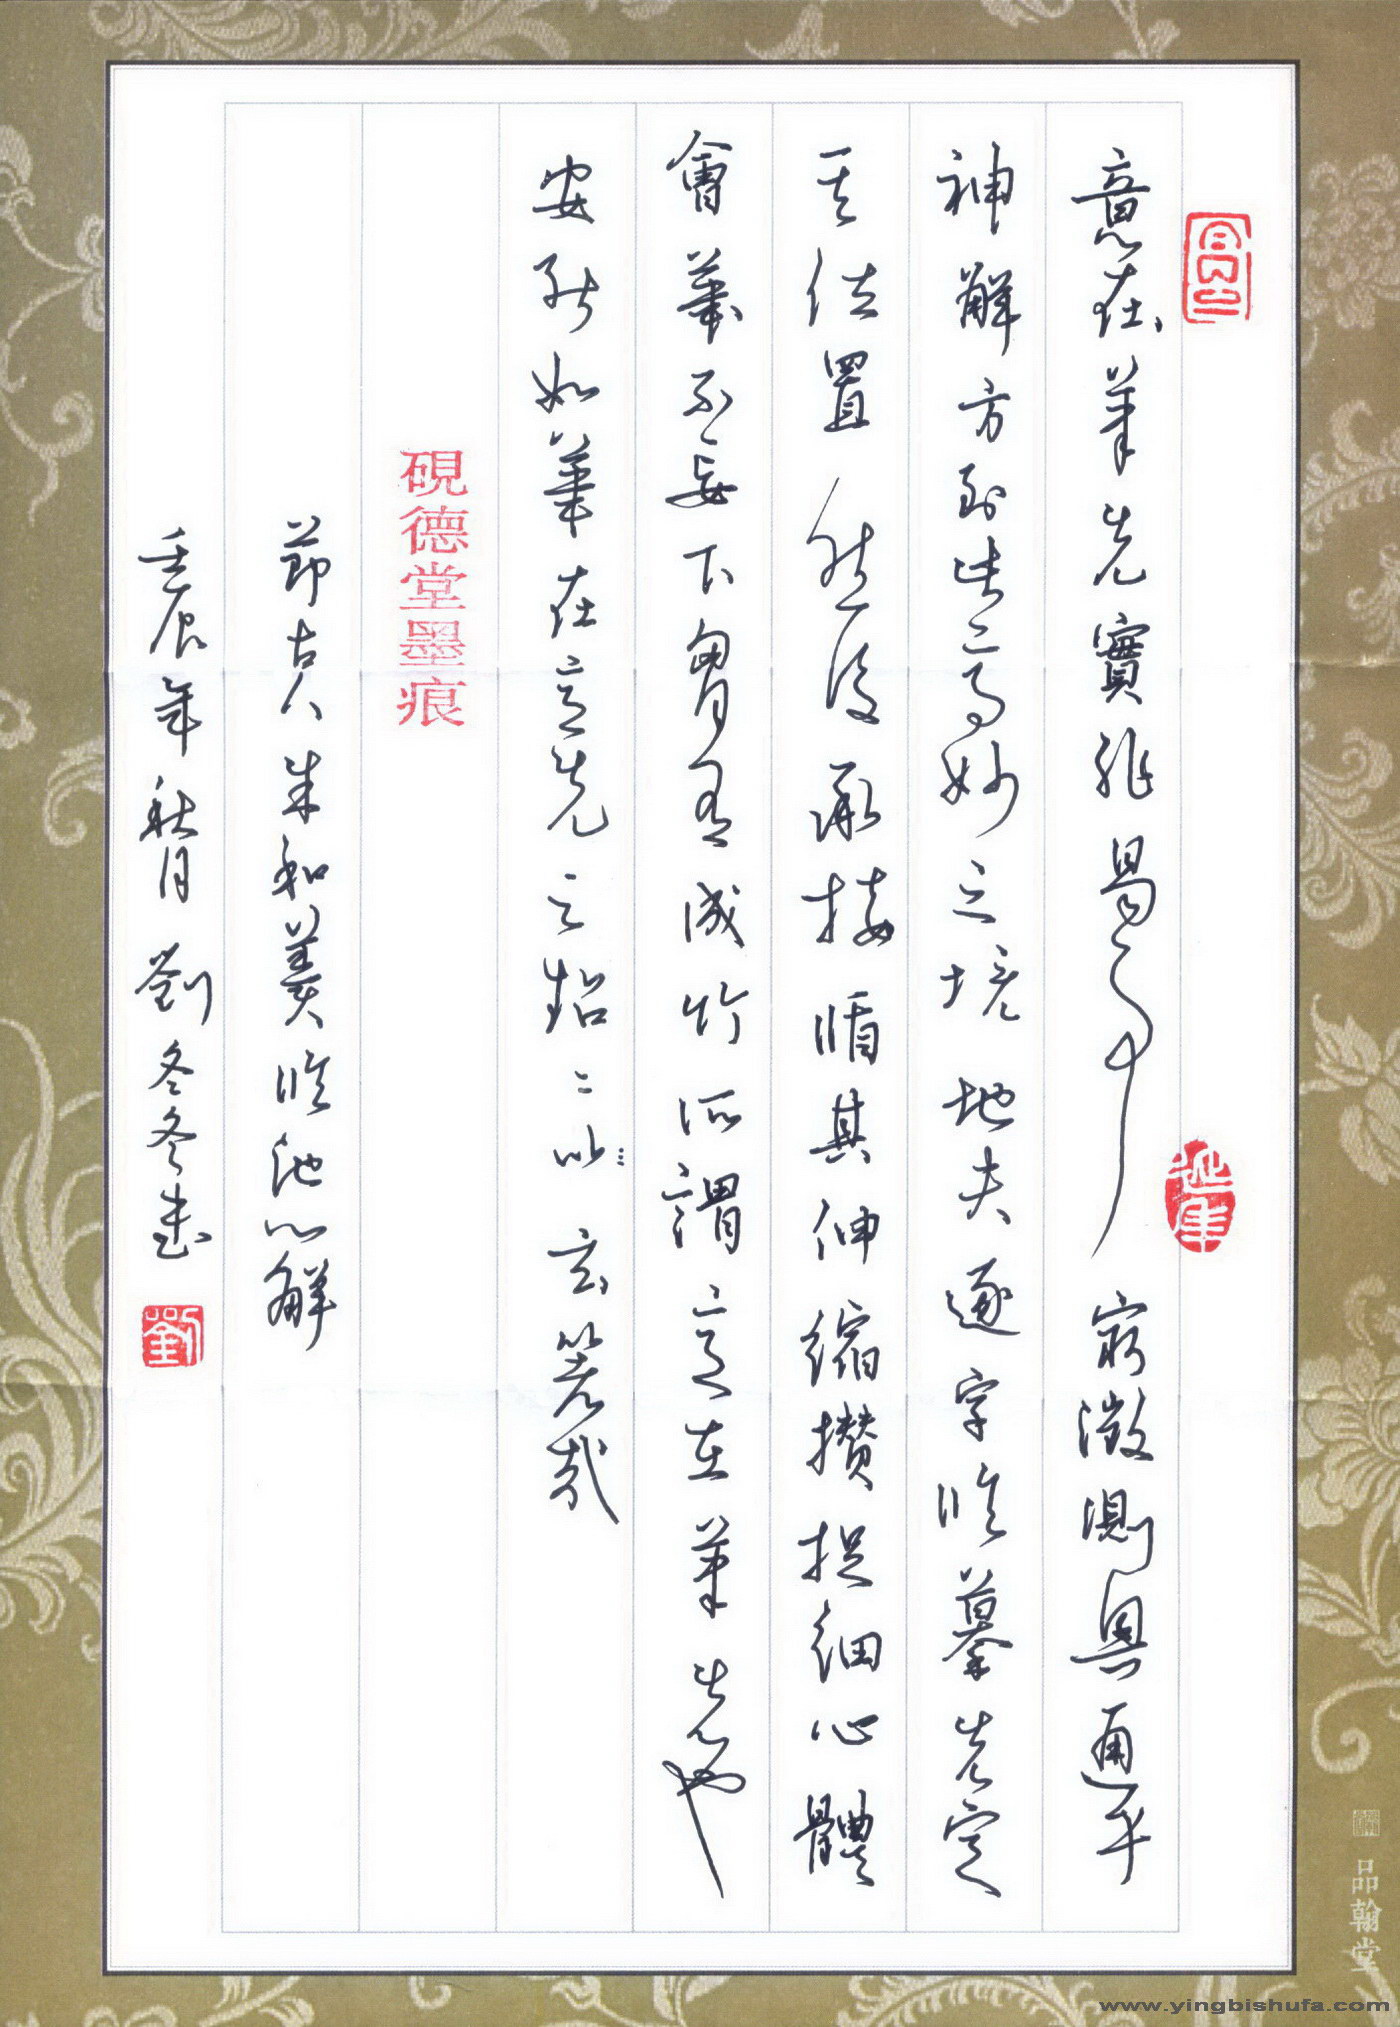 意在筆先實非易事窮微測奧通乎
神解方到此高妙之境地夫逐字臨摹先定
其位置然後承接循其伸縮攢捉細心體
會筆不妄下胸有成竹所謂意在筆先也
安能如筆在意先之拙拙以玄箸哉
硯德堂墨痕
節古人朱和羹臨池心解
壬辰年秋月劉冬冬書
劉
延年
品翰堂
www.yingbishufa.com